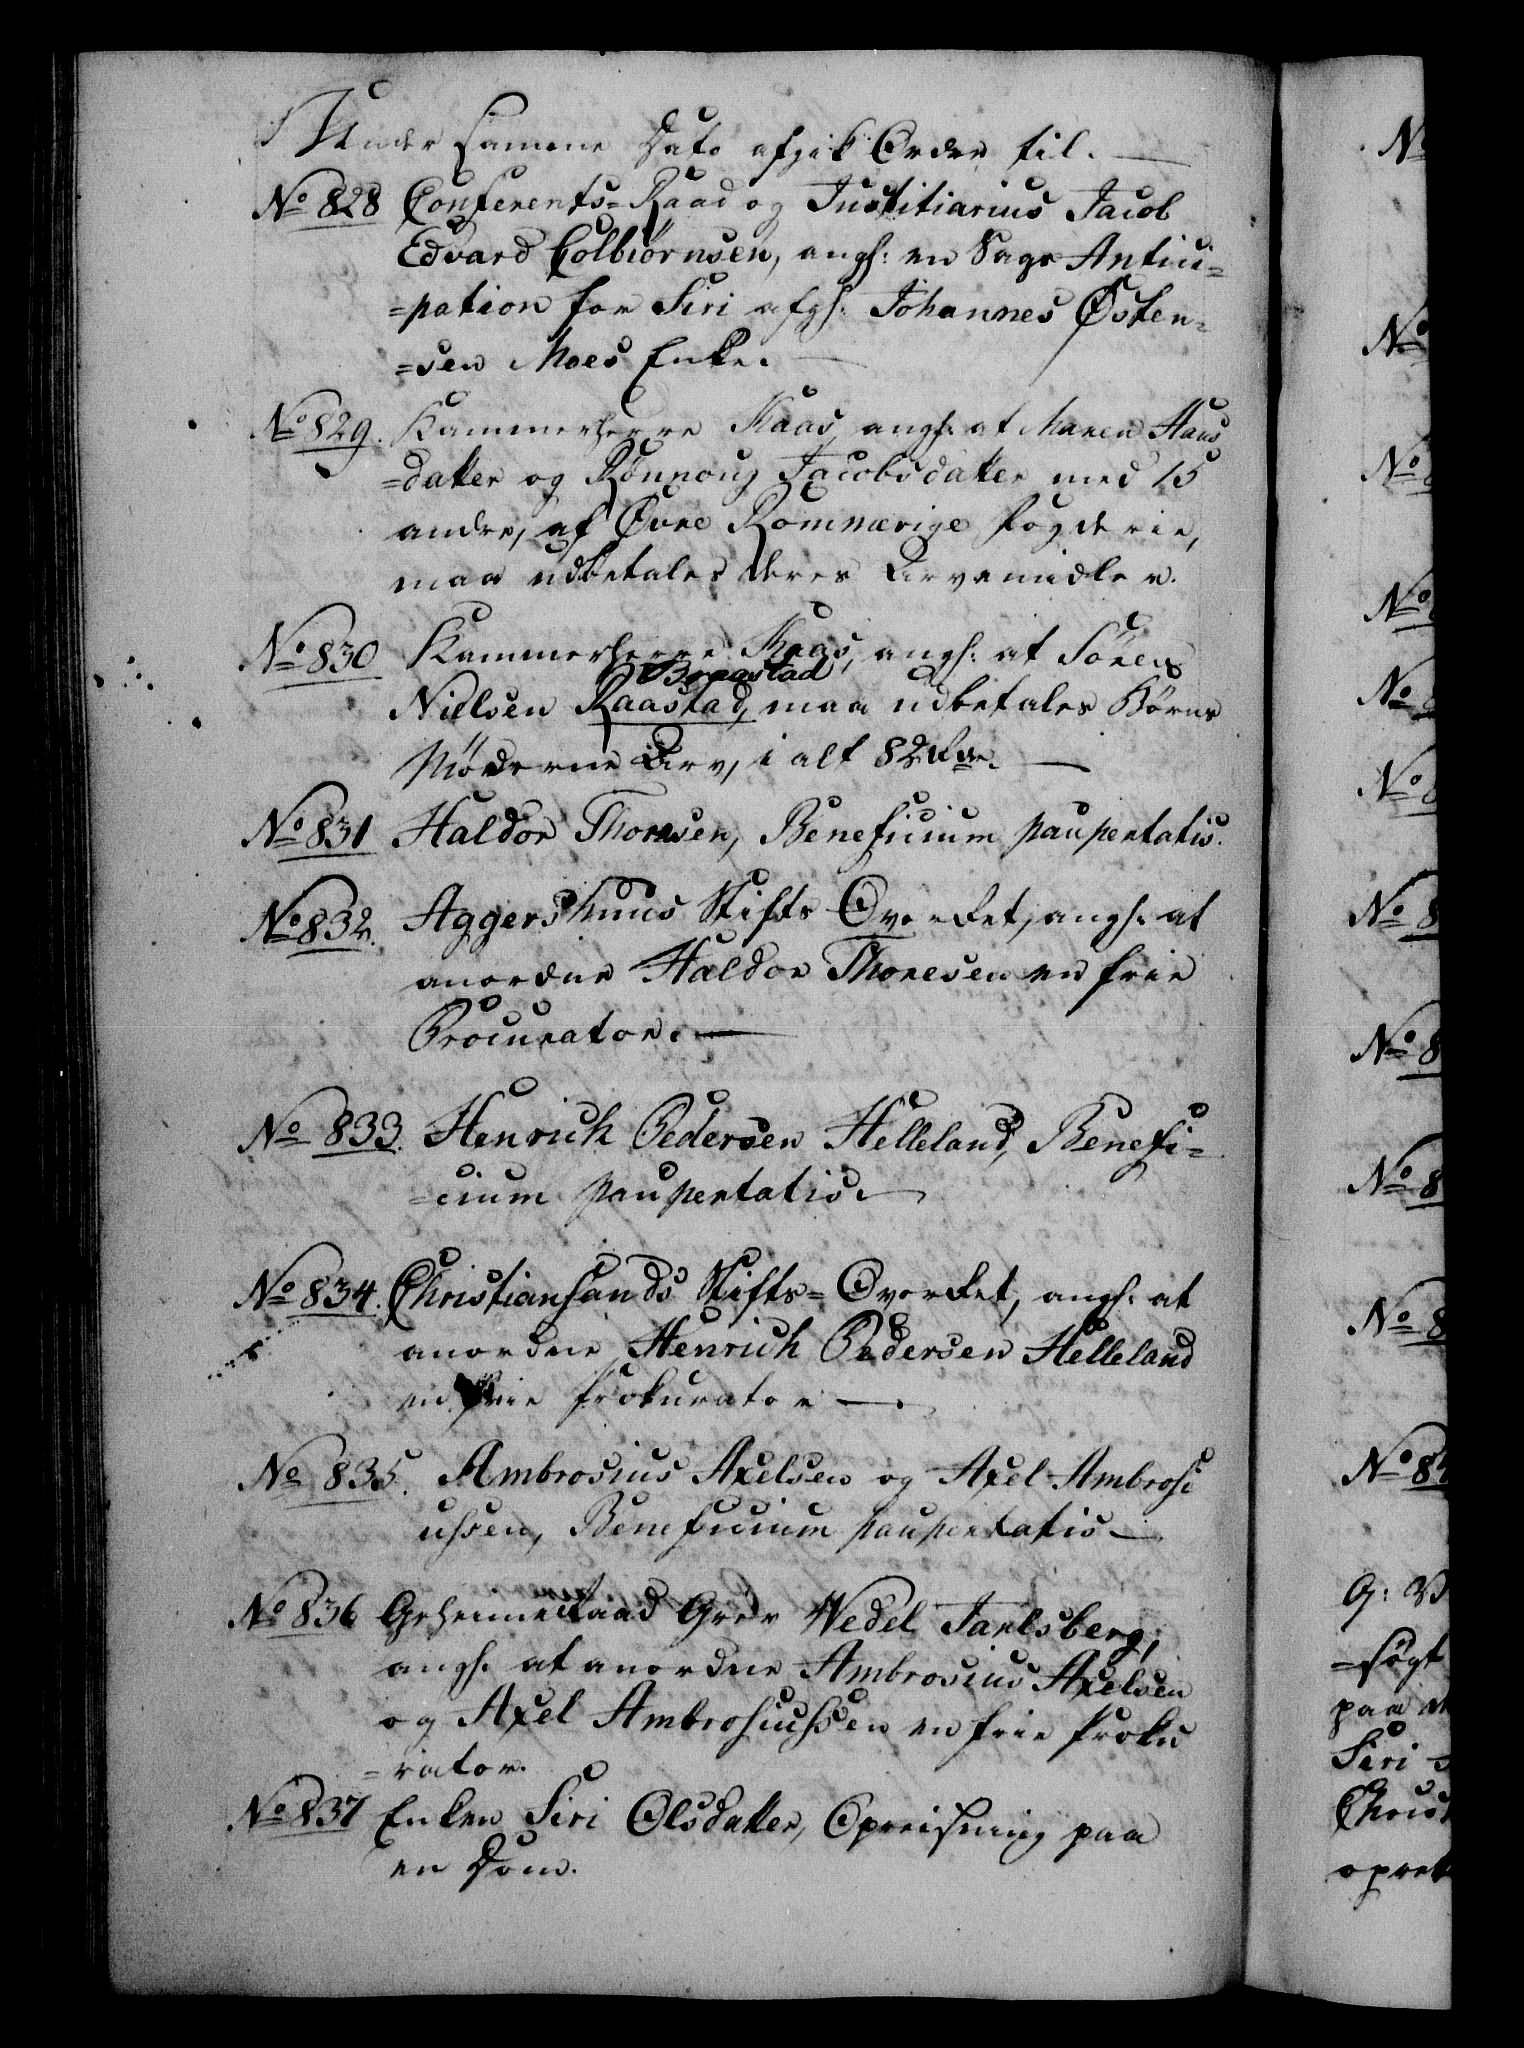 Under samme Dato afgik Ordre til.
No 828 Conferents-Raad og Justitiarius Jacob
Edvard Colbiörnsen, angl: en Sags Antici-
-pation for Siri afg: Johannes Østen-
-sen Moes Enke.
No 829. Kammerherre Kaas, angl: at Maren Hans
-datter og Rönnoug Jacobsdatter med 15
andre, af Övre Rommerige Fogderie,
maa udbetales deres Arvemidler.
No 830 Kammerherre Kaas, angl: at Sören
Bogestad
Nielsen Raastad, maa udbetales Börns
Möderne Arv, i alt 82 Rdr.
No 831 Haldor Thoresen, Beneficium paupertatis.
No 832. Aggershuus Stifts Overret, angl: at
anordne Haldor Thoresen en frie
Procurator.
No 833. Henrich Pedersen Helleland, Benefi-
-cium paupertatis.
No 834. Christiansands Stifts-Overret, angl: at
anordne Henrich Pedersen Helleland
en frie Prokurator
No 835. Ambrosius Axelsen og Axel Ambrosi
ussen, Beneficium paupertatis
No 836 Geheimeraad Grev Wedel Jarlsberg,
angl: at anordne Ambrosius Axelsen
og Axel Ambrosiussen en frie Proku
-rator.
No 837 Enken Siri Olsdatter, Opreisning paa
en Dom.
No
No
No 8
No 8
No 8
No 8
No 8
No 8
No 8
No 8
No 84
G: V
-søgt
paa
Siri
Christ
opret